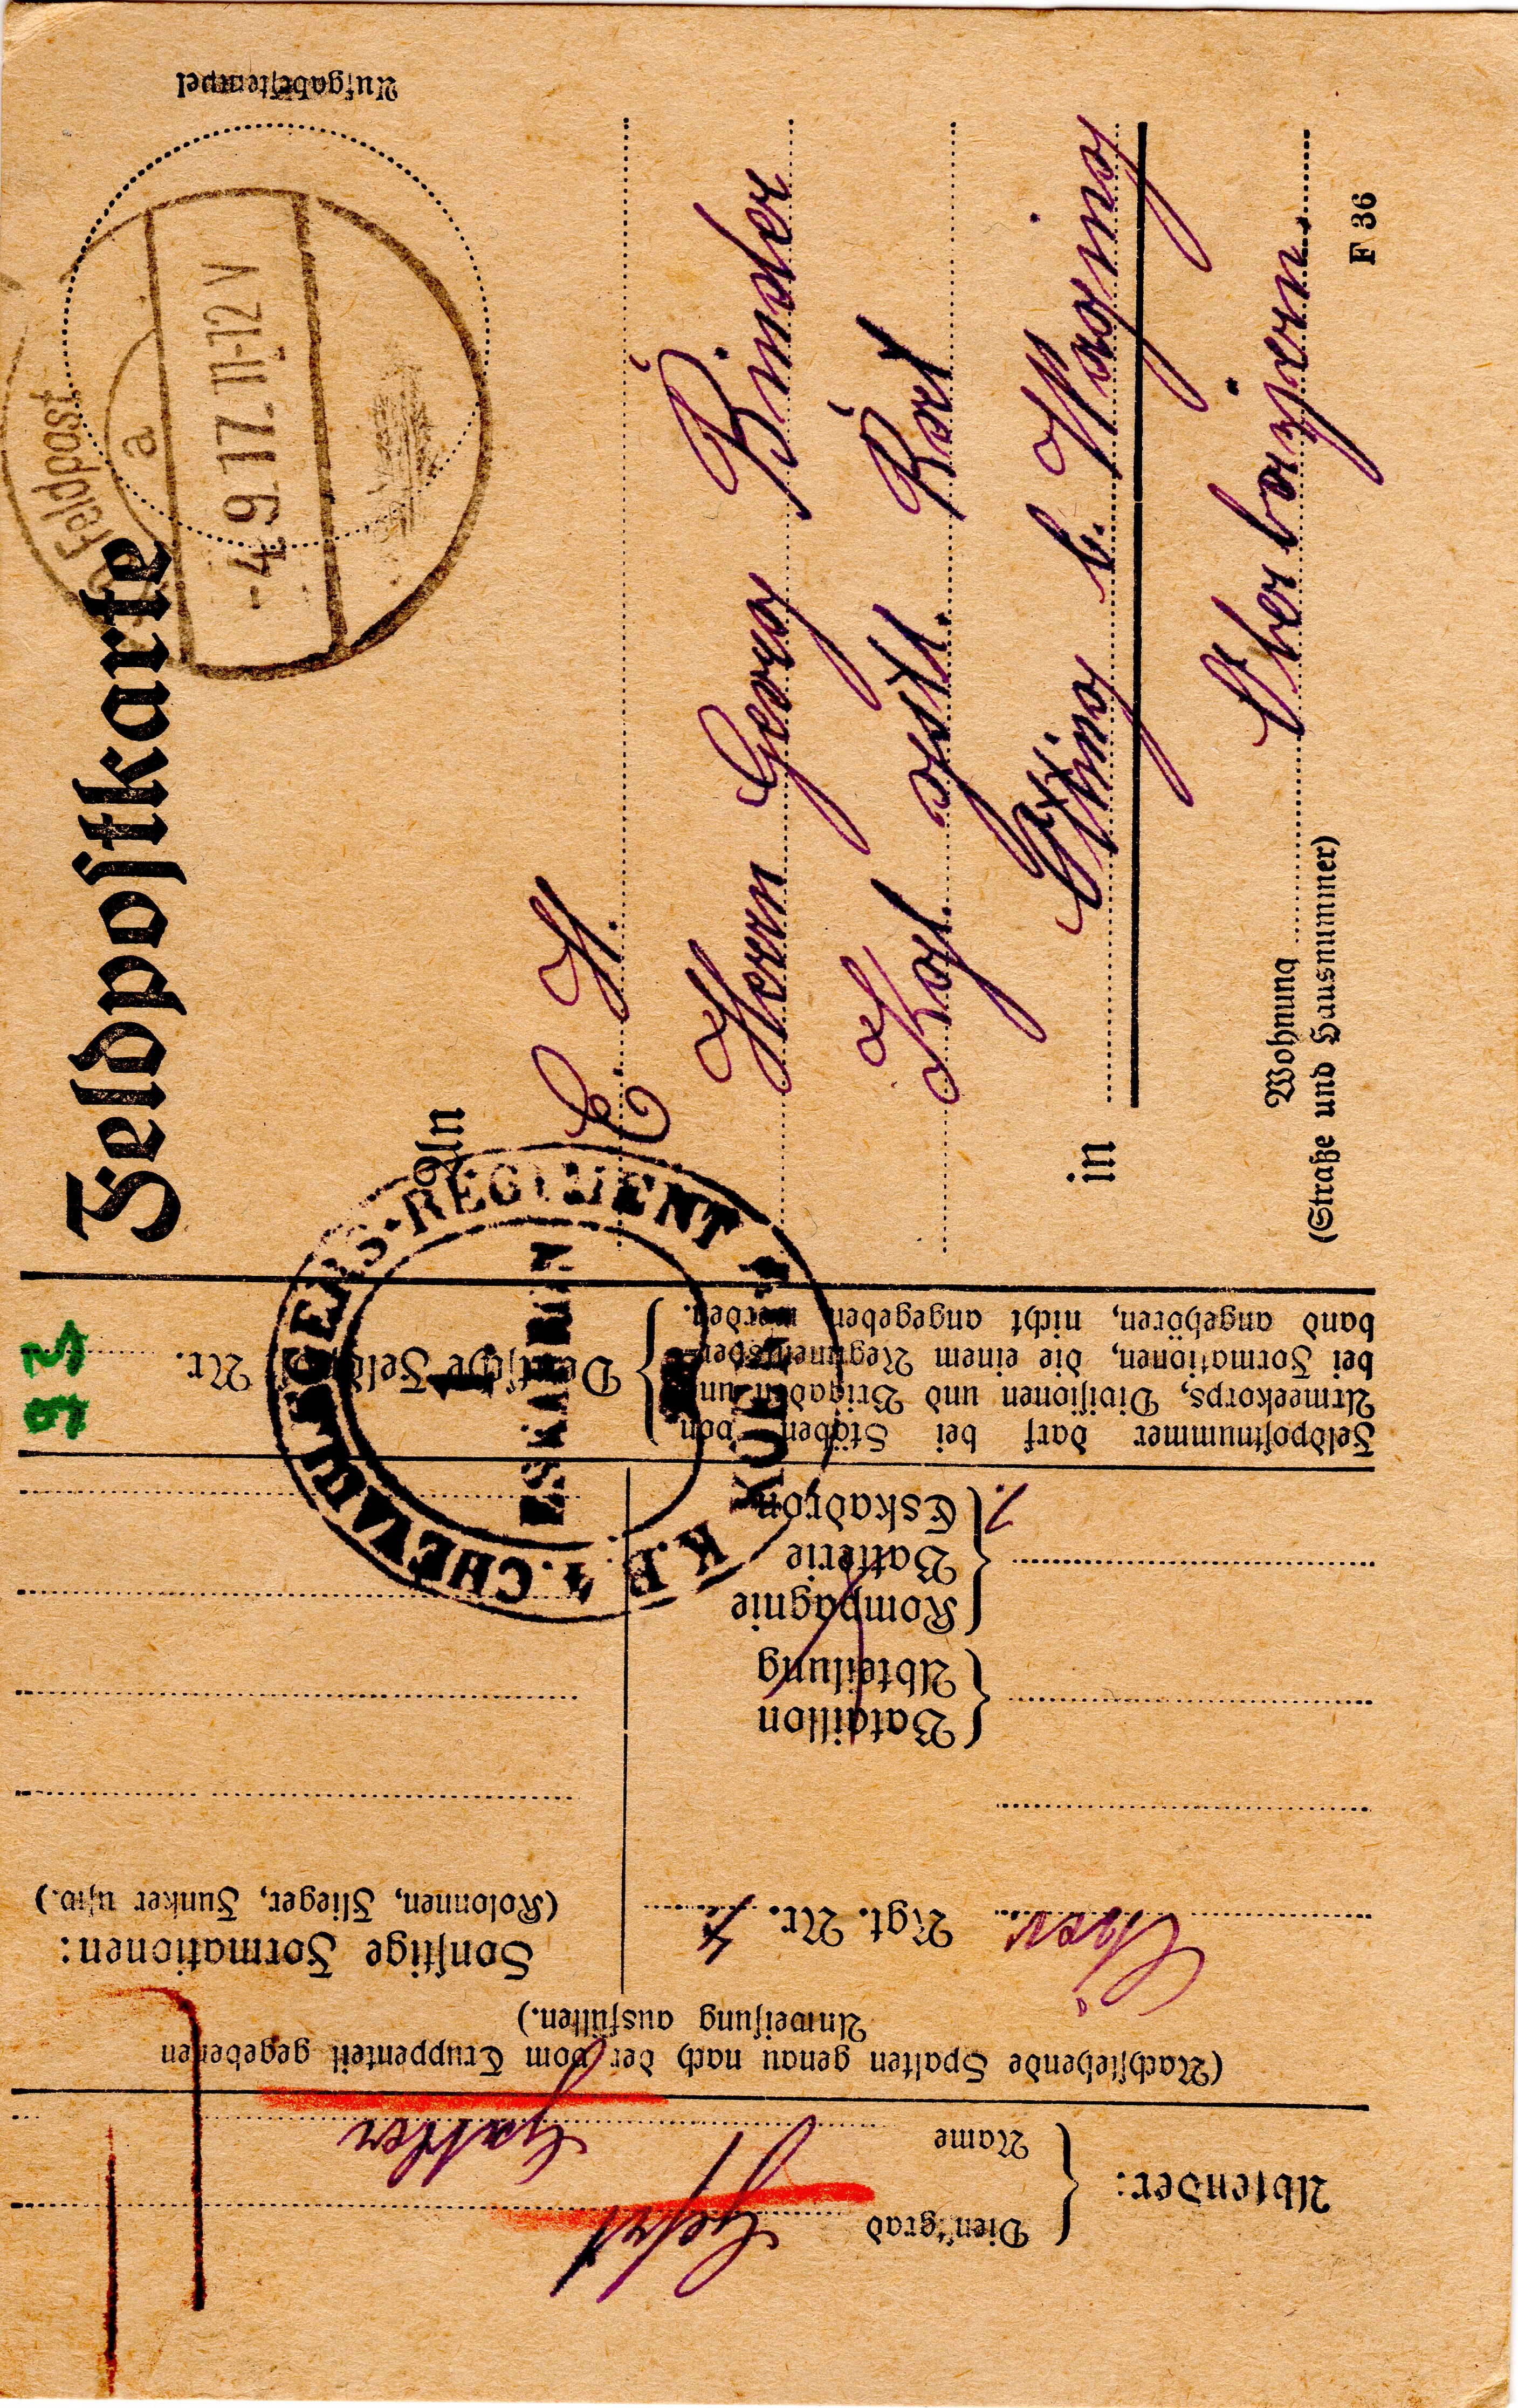 Feldpostkarte
Aufgabestempel
Feldpost
a
-4.9.17.11-12 V
An
E. H.
Herrn Georg Binder
Kgl. Rat
in Otting b. Waging
Oberbayern.
Wohnung
(Straße und Hausnummer)
F 36
Absender:
Dienstgrad Gefrt
Name
(Nachstehende Spalten genau nach der vom Truppenteil gegebenen
Anweisung ausfüllen.)
Chev. Rgt. Nr.
Bataillon
Abteilung
Kompagnie
Batterie
Eskadron
Sonstige Formationen:
(Kolonnen, Flieger, Funker usw.)
Feldpostnummer darf bei Stäben von
Armeekorps, Divisionen und Brigaden und
bei Formationen, die einem Regimentsver-
band angehören, nicht angegeben werden.
Deutsche Feldpost Nr.
93
CHEVAULEGERS-REGIMENT
K.B.
ESKADRON